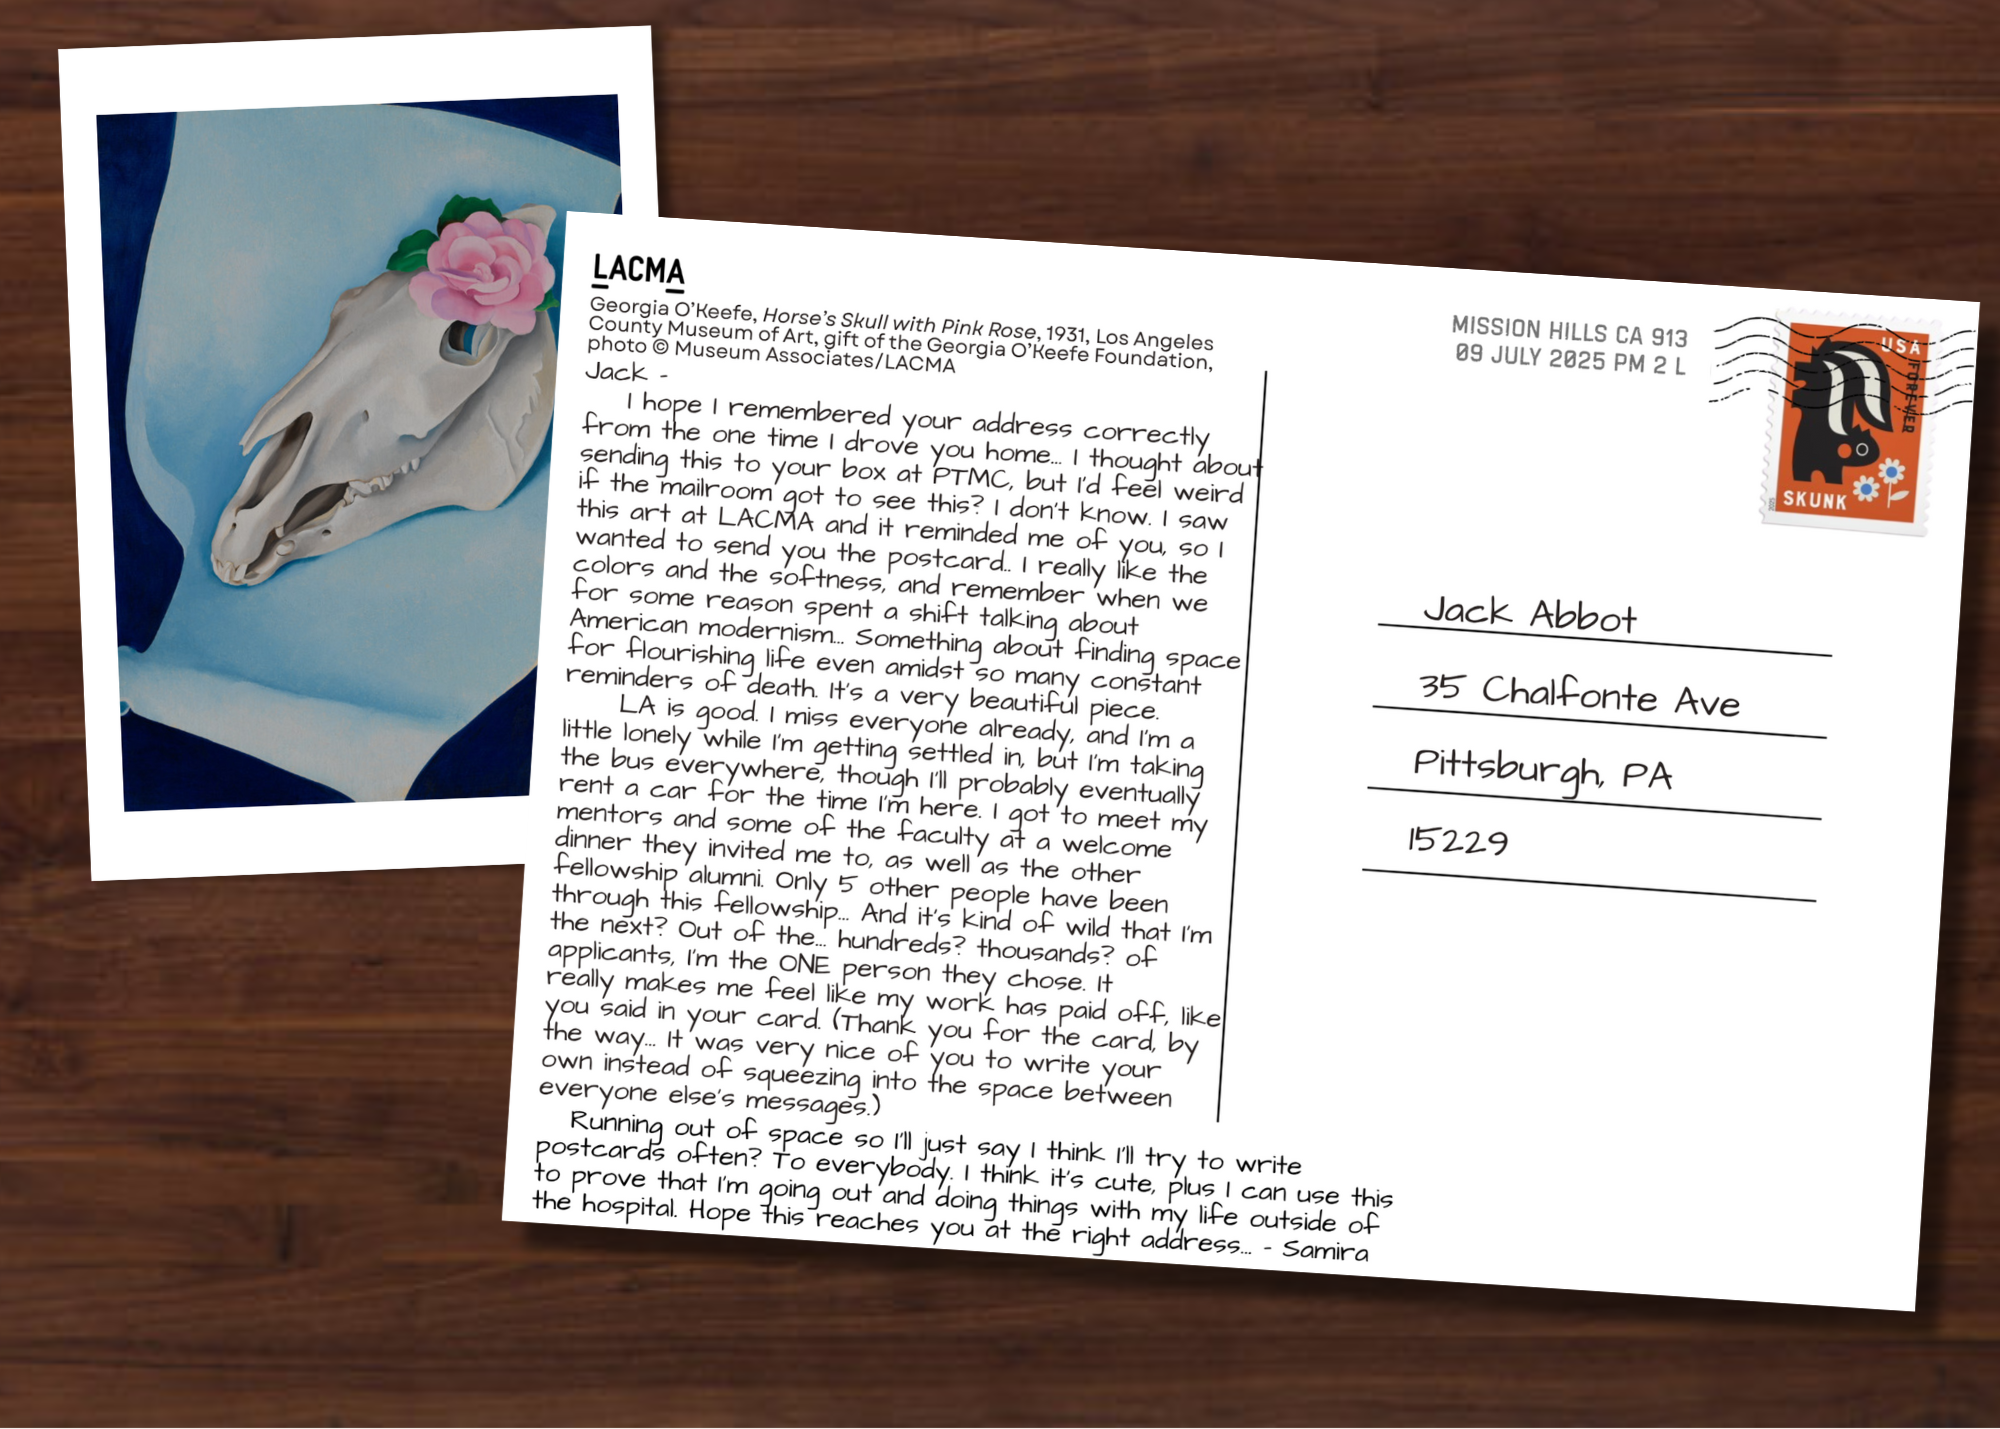 LACMA
Georgia O'Keefe, Horse's Skull with Pink Rose, 1931, Los Angeles
County Museum of Art, gift of the Georgia O'Keefe Foundation,
photo © Museum Associates/LACMA
Jack -
I hope I remembered your address correctly
from the one time I drove you home... I thought about
sending this to your box at PTMC, but I'd feel weird
if the mailroom got to see this? I don't know. I saw
this art at LACMA and it reminded me of you, so I
wanted to send you the postcard.. I really like the
colors and the softness, and remember when we
for some reason spent a shift talking about
American modernism... Something about finding space
for flourishing life even amidst so many constant
reminders of death. It's a very beautiful piece.
LA is good. I miss everyone already, and I'm a
little lonely while I'm getting settled in, but I'm taking
the bus everywhere, though I'll probably eventually
rent a car for the time I'm here. I got to meet my
mentors and some of the faculty at a welcome
dinner they invited me to, as well as the other
fellowship alumni. Only 5 other people have been
through this fellowship... And it's kind of wild that I'm
the next? Out of the... hundreds? thousands? of
applicants, I'm the ONE person they chose. It
really makes me feel like my work has paid off, like
you said in your card. (Thank you for the card, by
the way... It was very nice of you to write your
own instead of squeezing into the space between
everyone else's messages.)
Running out of space so I'll just say I think I'll try to write
postcards often? To everybody. I think it's cute, plus I can use this
to prove that I'm going out and doing things with my life outside of
the hospital. Hope this reaches you at the right address... - Samira
MISSION HILLS CA 913
09 JULY 2025 PM 2 L
USA
FOREVER
SKUNK
2025
Jack Abbot
35 Chalfonte Ave
Pittsburgh, PA
15229